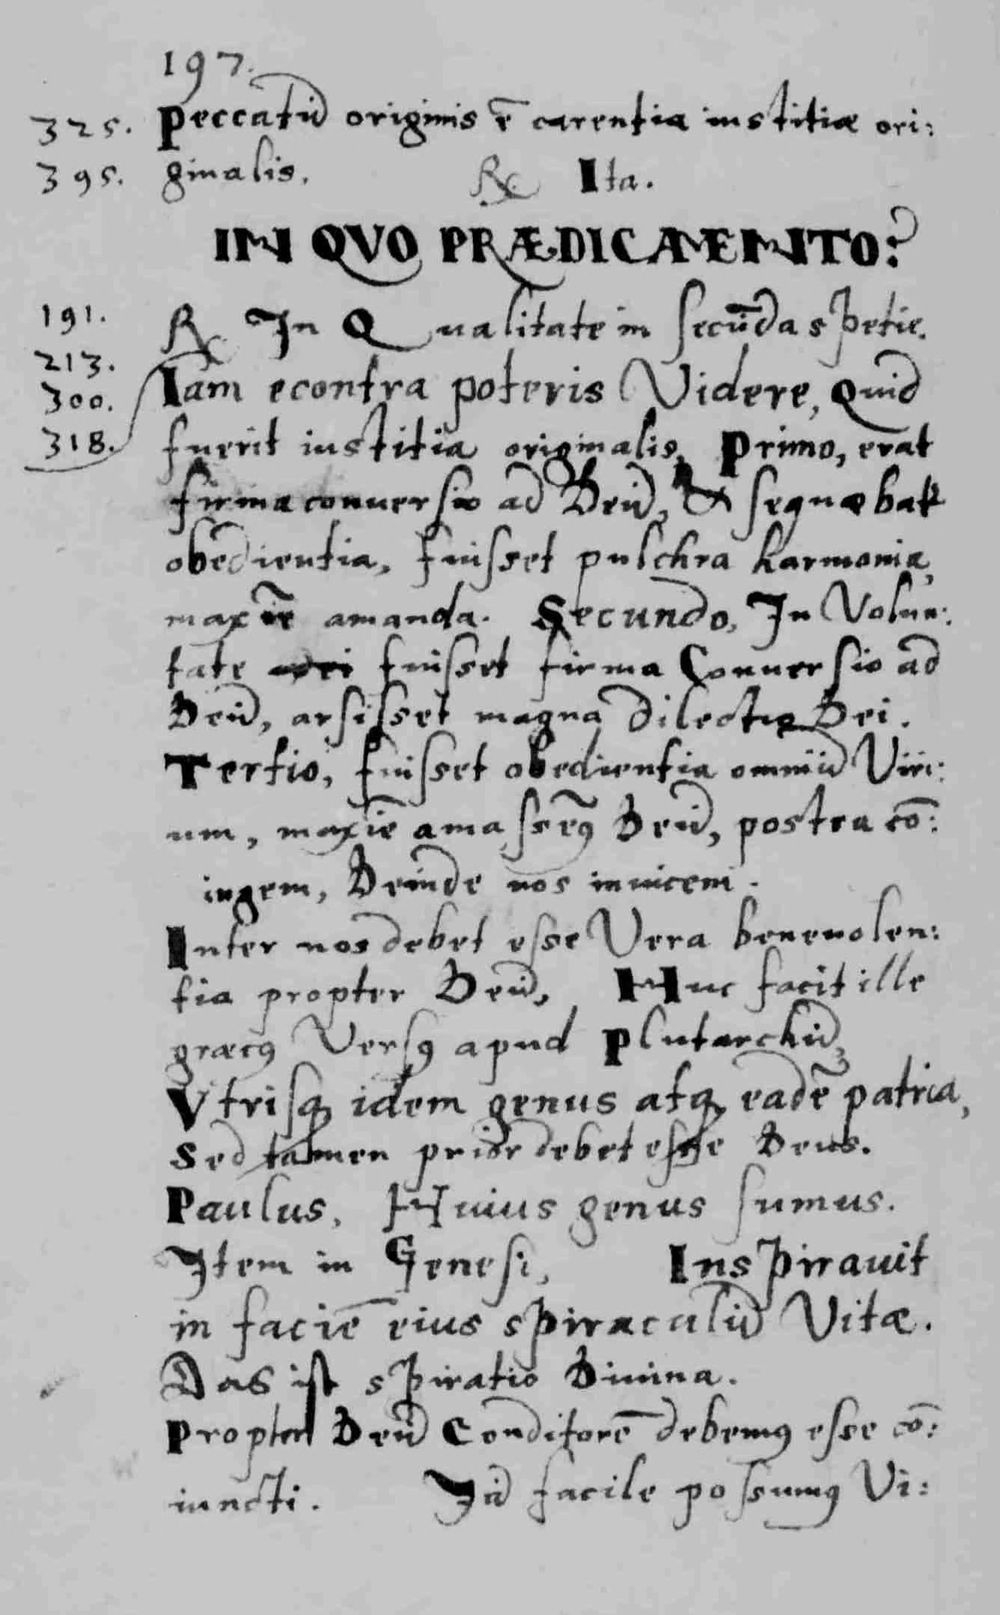 197.
325. Peccatũ originis ẽ carentia iustitiæ ori:
395. ginalis. ℞ Ita.
IN QVO PRÆDICAMENTO?
191. ℞ In Qualitate in secũda spetie.
213.
300. Iam econtra poteris Videre, Quid
318. fuerit iustitia originalis, Primo, erat
firma conuersio ad Deũ, & sequæbat
obedientia, fuisset pulchra harmonia,
maxĩe amanda. Secundo, In Volun:
tate fuisset firma Conuersio ad
Deũ, arsisset magna dilectio Dei.
Tertio, fuisset obedientia omniũ Viri:
um, maxĩe amassẽꝰ Deũ, postea cõ:
iugem, Deinde nos inuicem.
Inter nos debet esse Vera beneuolen:
tia propter Deũ, Huc facit ille
græcꝰ Versꝰ apud Plutarchũ,
Vtrisqꝫ idem genus atqꝫ eadẽ patria,
Sed tamen prior debet esse Deus.
Paulus, Huius genus sumus.
Item in Genesi, Inspirauit
in faciẽ eius spiraculũ Vitæ.
Das ist spiratio Diuina.
Propter Deũ Conditorẽ debemꝰ esse cõ:
iuncti. Id facile possumꝰ Vi: